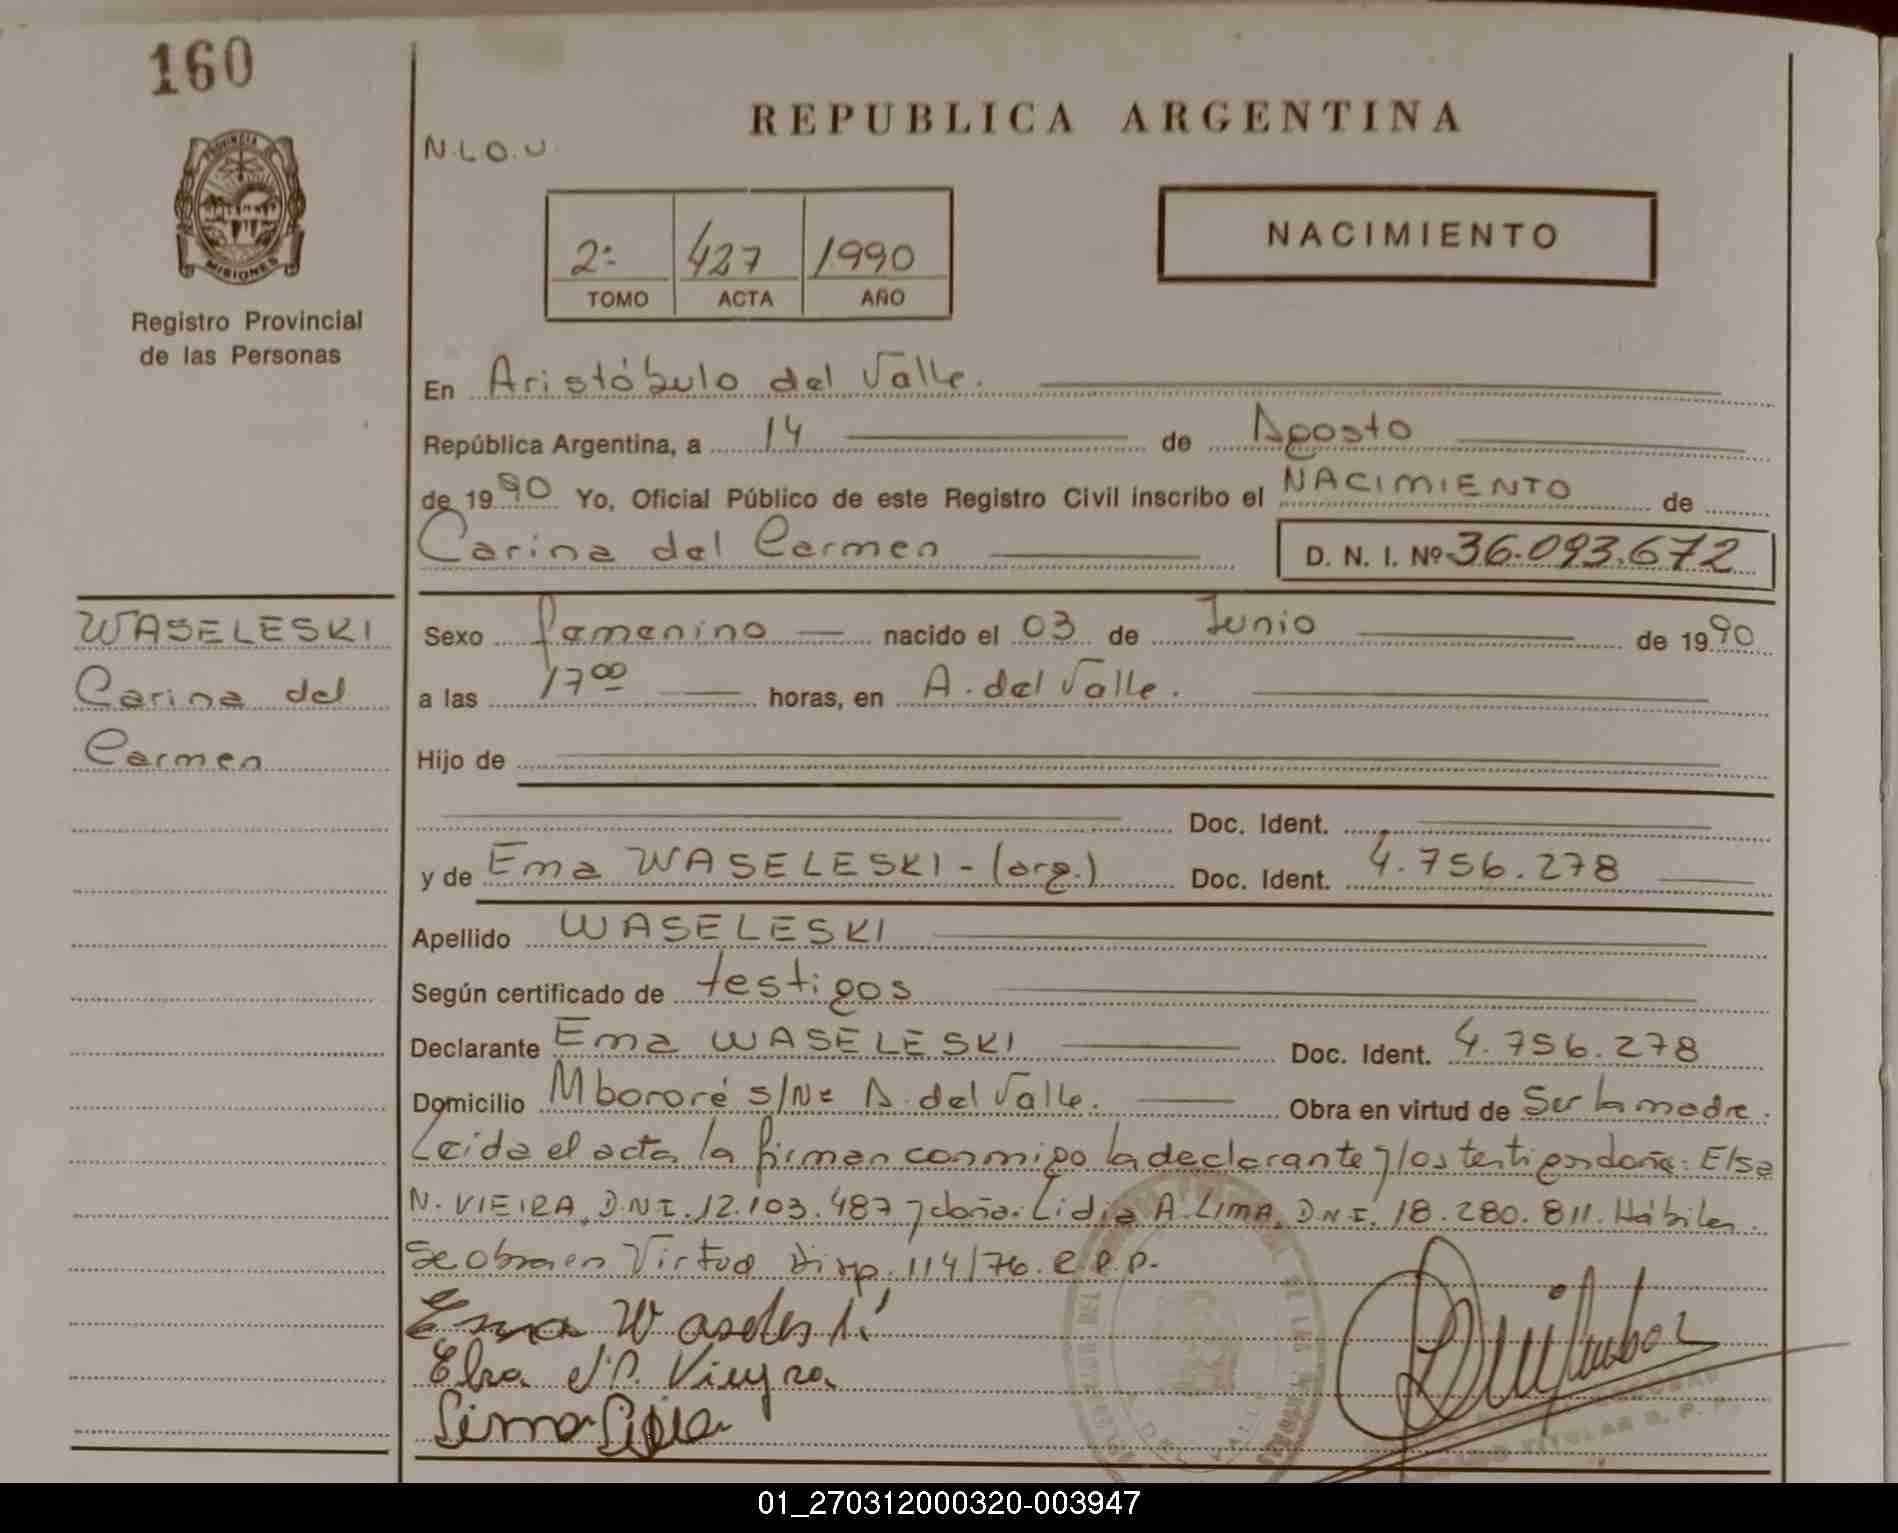 160
PROVINCIA DE
MISIONES
Registro Provincial
de las Personas
REPUBLICA ARGENTINA
N.L.O.U.
2º 427 1990
TOMO ACTA AÑO
NACIMIENTO
En Aristóbulo del Valle.
República Argentina, a 14 de Agosto
de 1990 Yo, Oficial Público de este Registro Civil inscribo el NACIMIENTO de
Carina del Carmen D. N. I. Nº 36.093.672
WASELESKI
Carina del
Carmen
Sexo femenino nacido el 03 de Junio de 1990
a las 17 00 horas, en A. del Valle.
Hijo de
Doc. Ident.
y de Ema WASELESKI - (arg.) Doc. Ident. 4.756.278
Apellido WASELESKI
Según certificado de testigos
Declarante Ema WASELESKI Doc. Ident. 4.756.278
Domicilio Mbororé s/Nº A. del Valle. Obra en virtud de Ser la madre.
Leida el acta la firman conmigo la declarante y los testigos doña: Elsa
N. VIEIRA, D.N.I. 12.103.487 y doña Lidia A. LIMA, D.N.I. 18.280.811. Hábiles.
Se obra en Virtud Disp. 114/76.
Elsa N. P. Vieyra
Lima Lidia
TITULAR R. P. P.
01_270312000320-003947